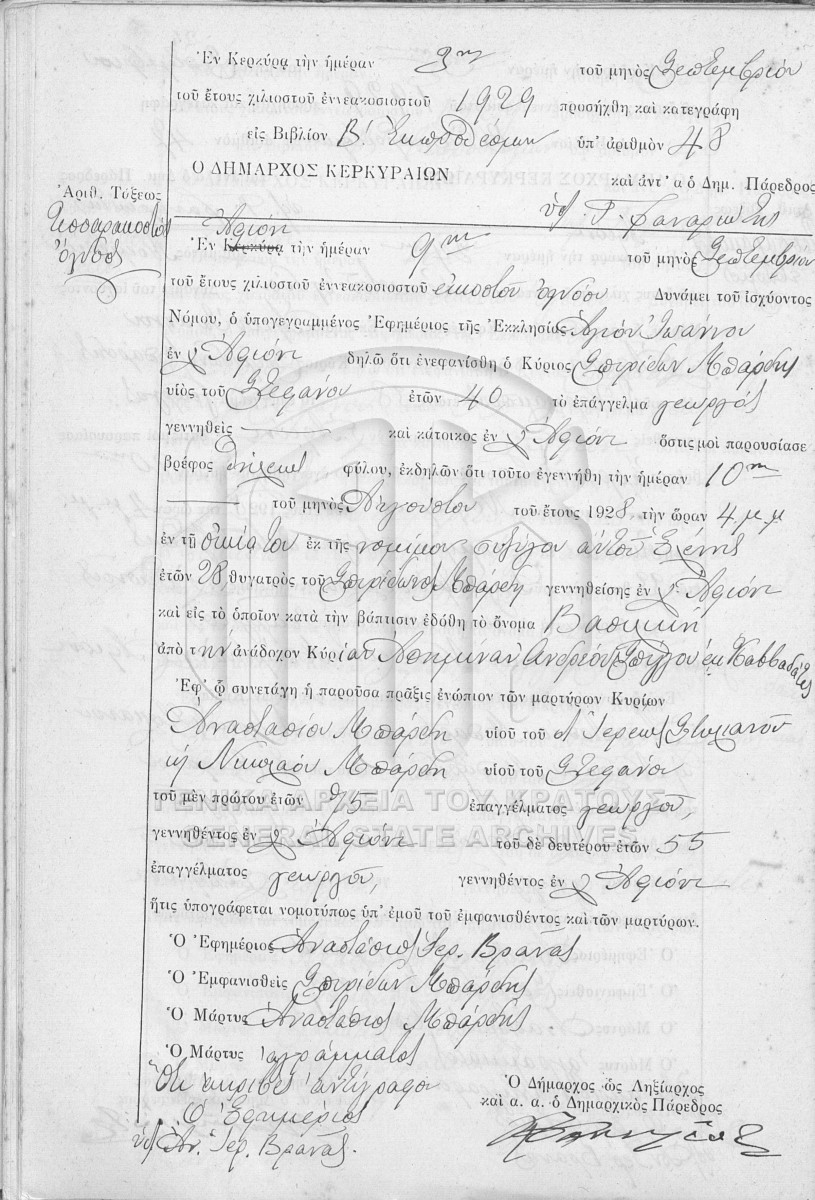 Ἐν Κερκύρᾳ τὴν ἡμέραν 3ην τοῦ μηνὸς Σεπτεμβρίου
τοῦ ἔτους χιλιοστοῦ ἐννεακοσιοστοῦ 1929 προσήχθη καὶ κατεγράφη
εἰς Βιβλίον Β. Ἐκπροθέσμων ὑπ' ἀριθμὸν 48
Ο ΔΗΜΑΡΧΟΣ ΚΕΡΚΥΡΑΙΩΝ
καὶ ἀντ' α ὁ Δημ. Πάρεδρος
Ἀριθ. Τάξεως
Τεσσαρακοστὸς
ὄγδοος
Ἀφιόνι
Ἐν Κερκύρᾳ τὴν ἡμέραν 9ην τοῦ μηνὸς Σεπτεμβρίου
τοῦ ἔτους χιλιοστοῦ ἐννεακοσιοστοῦ εἰκοστοῦ ὀγδόου Δυνάμει τοῦ ἰσχύοντος
Νόμου, ὁ ὑπογεγραμμένος Ἐφημέριος τῆς Ἐκκλησίας Ἁγίου Ἰωάννου
ἐν Ἀφιόνι δηλῶ ὅτι ἐνεφανίσθη ὁ Κύριος Σπιρίδων Μπάρδης
υἱὸς τοῦ Στεφάνου ἐτῶν 40 τὸ ἐπάγγελμα γεωργός
γεννηθεὶς καὶ κάτοικος ἐν Ἀφιόνι ὅστις μοὶ παρουσίασε
βρέφος θήλεως φύλου, ἐκδηλῶν ὅτι τοῦτο ἐγεννήθη τὴν ἡμέραν 10ην
τοῦ μηνὸς Αὐγούστου τοῦ ἔτους 1928 τὴν ὥραν 4 μ.μ
ἐν τῇ οἰκίᾳ του ἐκ τῆς νομίμου συζύγου αὐτοῦ Ἑλένης
ἐτῶν 28 θυγατρὸς τοῦ Σπιρίδωνος Μπάρδη γεννηθείσης ἐν Ἀφιόνι
καὶ εἰς τὸ ὁποῖον κατὰ τὴν βάπτισιν ἐδόθη τὸ ὄνομα Βασιλική
ἀπὸ τὴν ἀνάδοχον Κυρίαν Ἀσημίναν Ἀνδρέου ἐκ Καββαδάτες
Ἐφ' ᾧ συνετάγη ἡ παροῦσα πρᾶξις ἐνώπιον τῶν μαρτύρων Κυρίων
Ἀναστασίου Μπάρδη υἱοῦ τοῦ Ἱερέως Στυλιανοῦ
κ Νικολάου Μπάρδη υἱοῦ τοῦ Στεφάνου
τοῦ μὲν πρώτου ἐτῶν 75 ἐπαγγέλματος γεωργοῦ,
γεννηθέντος ἐν Ἀφιόνι τοῦ δὲ δευτέρου ἐτῶν 55
ἐπαγγέλματος γεωργοῦ, γεννηθέντος ἐν Ἀφιόνι
ἥτις ὑπογράφεται νομοτύπως ὑπ' ἐμοῦ τοῦ ἐμφανισθέντος καὶ τῶν μαρτύρων.
Ὁ Ἐφημέριος Ἀναστάσιος Ἱερ. Βρανᾶς
Ὁ Ἐμφανισθεὶς Σπιρίδων Μπάρδης
Ὁ Μάρτυς Ἀναστάσιος Μπάρδης
Ὁ Μάρτυς ἀγράμματος
Ὅτι ἀκριβὲς ἀντίγραφον
Ὁ Ἐφημέριος
Ἀν. Ἱερ. Βρανᾶς.
Ὁ Δήμαρχος ὡς Ληξίαρχος
καὶ α. α. ὁ Δημαρχικὸς Πάρεδρος
ΓΕΝΙΚΑ ΑΡΧΕΙΑ ΤΟΥ ΚΡΑΤΟΥΣ
GENERAL STATE ARCHIVES